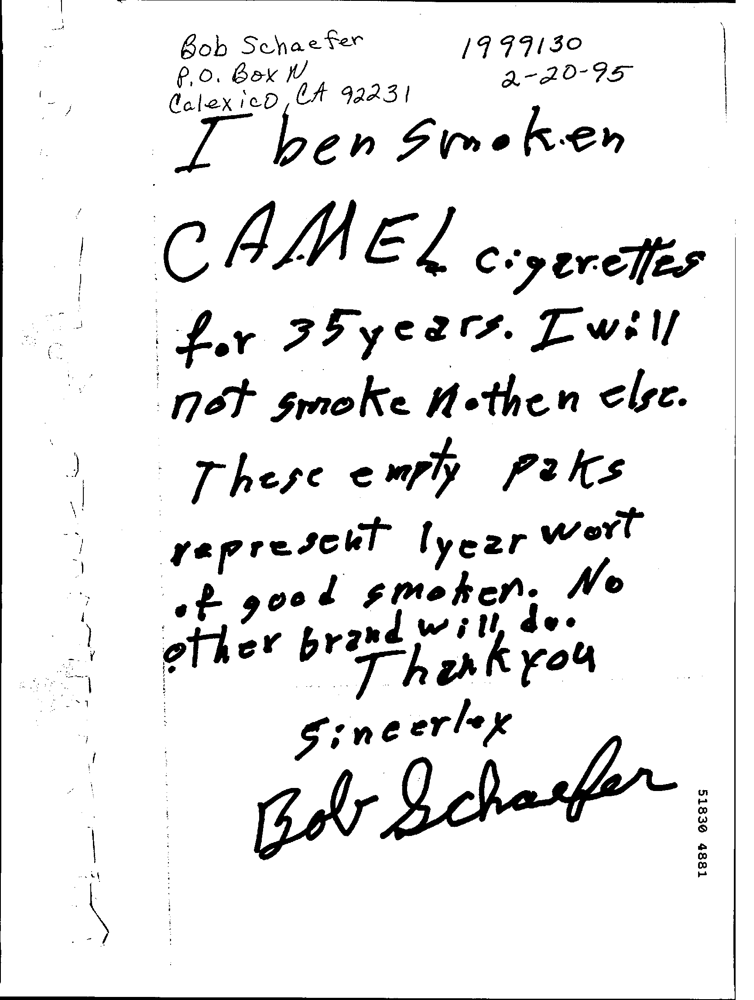 Bob Schaefer
1999130
P.O. Box N
2-20-95
Calexico, CA 92231
I ben smoken
CAMEL cigarettes
for 35 years. I will
not smoke nothen else.
These empty paks
represent 1 year wort
of good smoken. No
other brand will do.
Thank you
Sincerley
Bob Schaefer
51830 4881